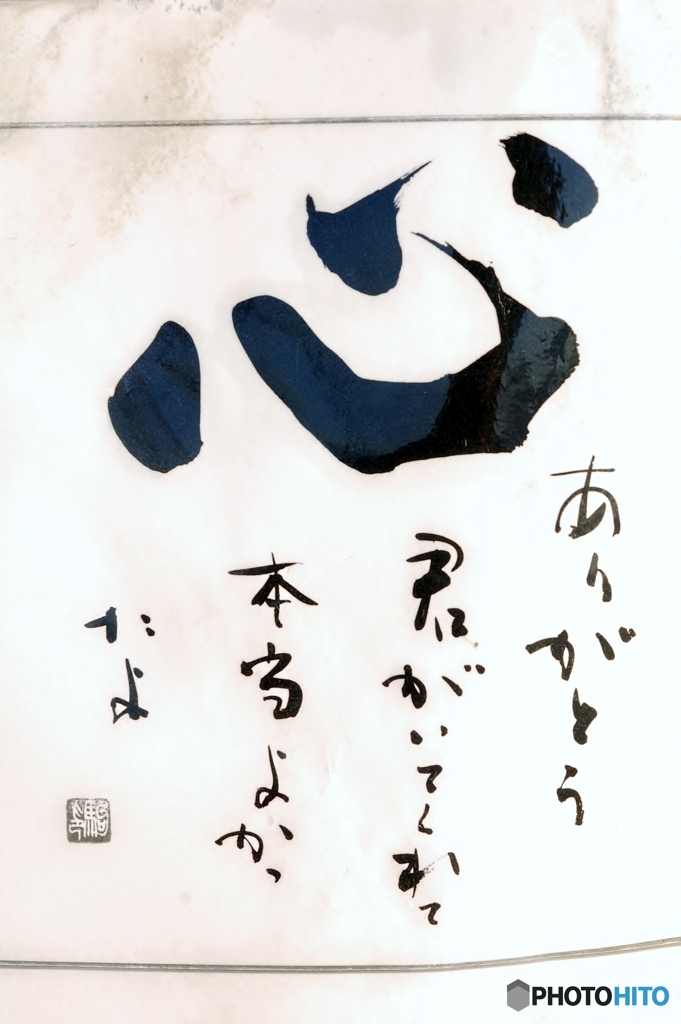 心
ありがとう
君がいてくれて
本当よかっ
たよ
PHOTOHITO